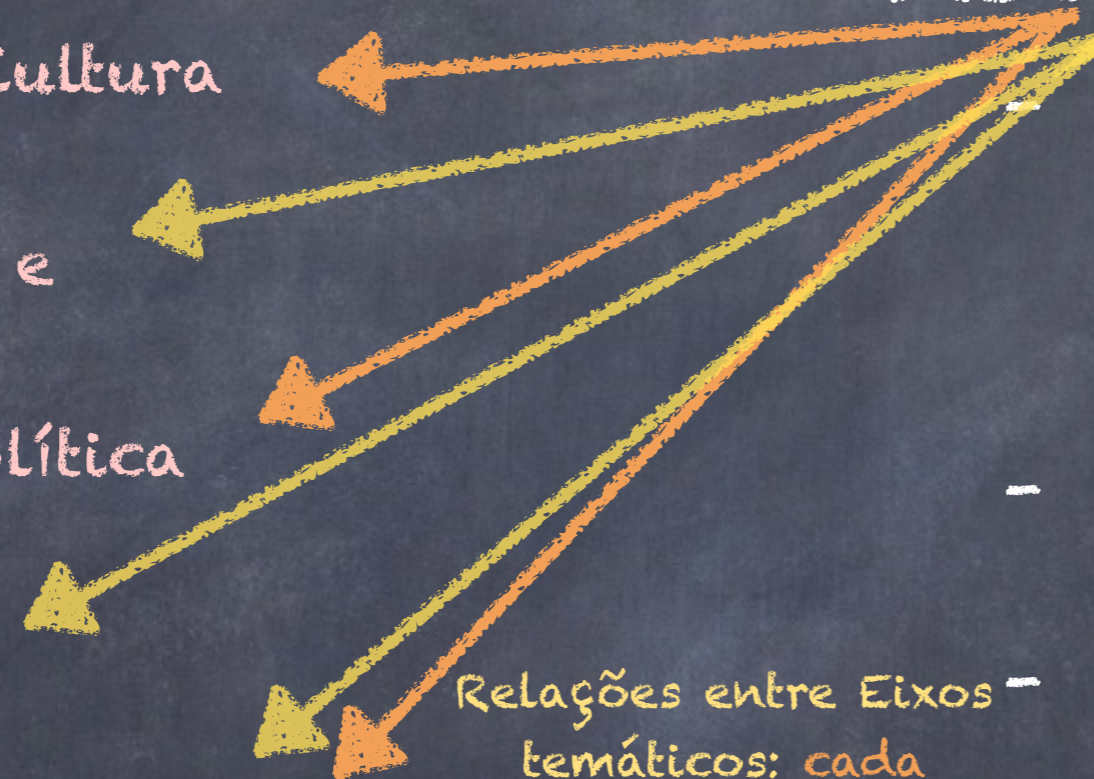 Cultura
e
lítica
Relações entre Eixos
temáticos: cada